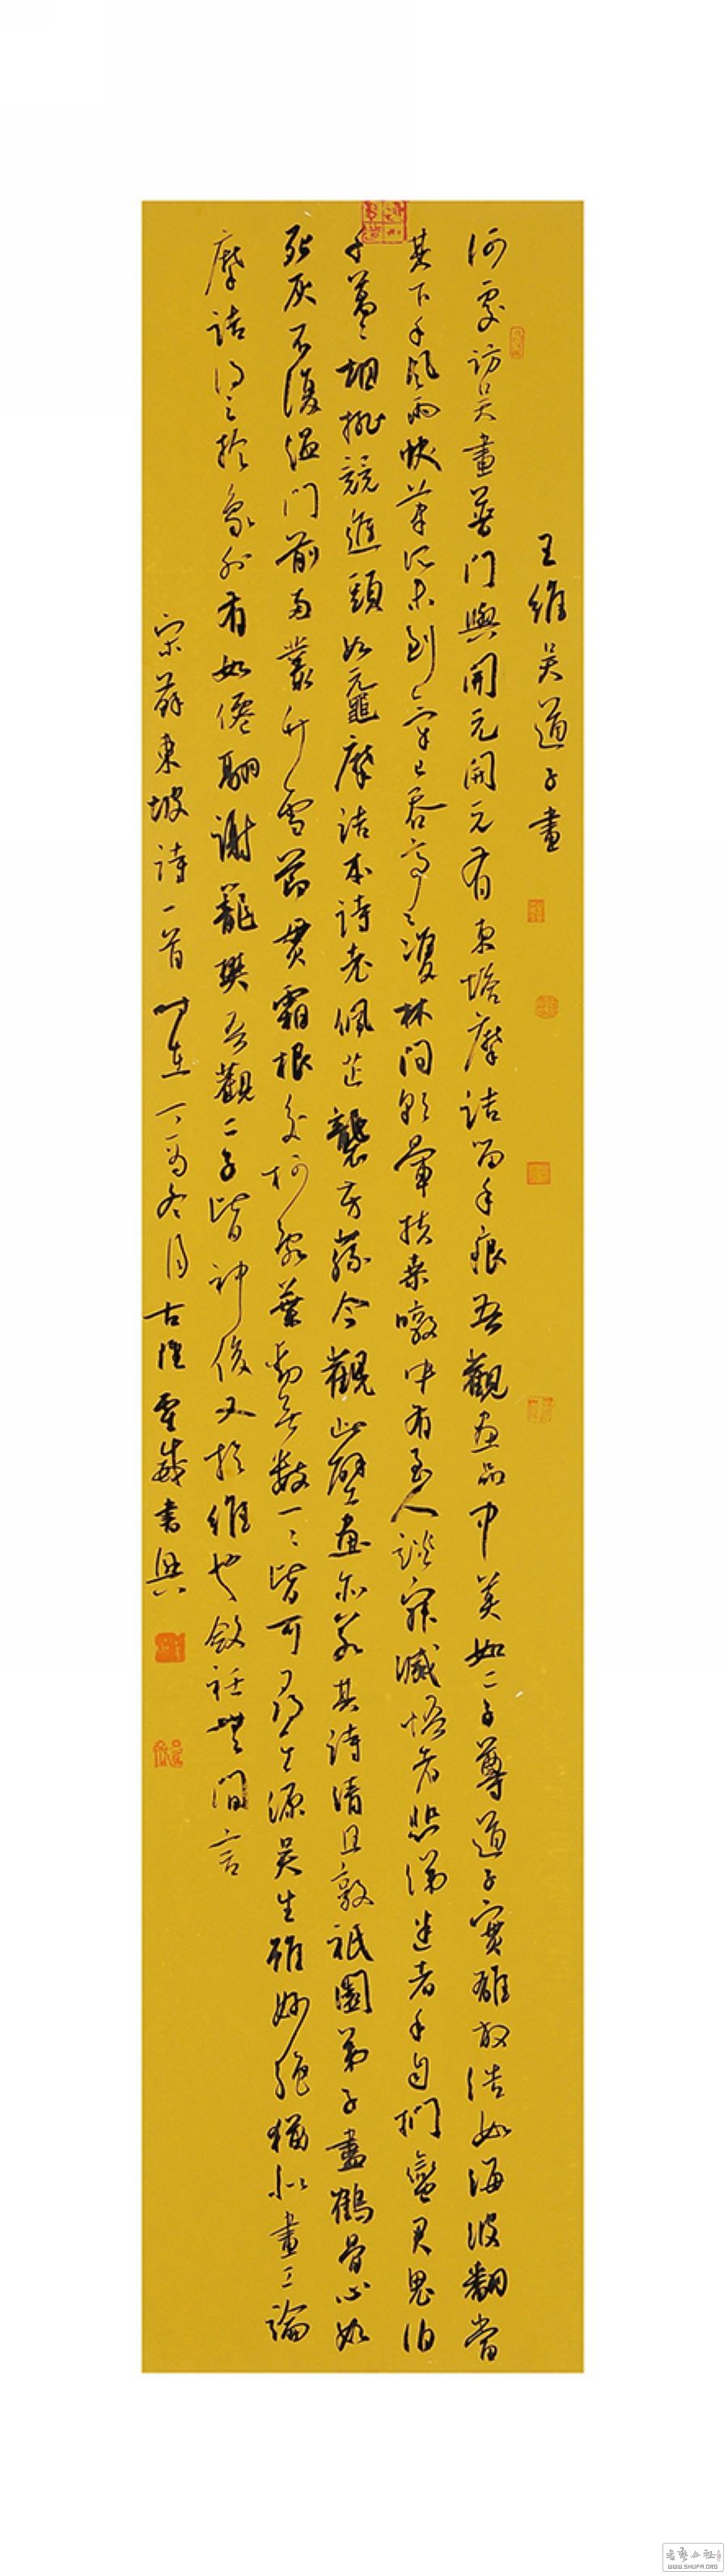 王維吳道子畫
何處訪吳畫普門與開元開元有東塔摩詰留手痕吾觀畫品中莫如二子尊道子實雄放浩如海波翻當
其下手風雨快筆所未到氣已吞亭亭雙林間彩暈扶桑暾中有至人談寂滅悟者悲涕迷者手自捫蠻君鬼伯
千萬萬相排競進頭如黿摩詰本詩老佩芷襲芳蓀今觀此壁畫亦若其詩清且敦祇園弟子盡鶴骨心如
死灰不復溫門前兩叢竹雪節貫霜根交柯亂葉動無數一一皆可尋其源吳生雖妙絕猶以畫工論
摩詰得之於象外有如僊翮謝籠樊吾觀二子皆神俊又於維也斂衽無間言
宋蘇東坡詩一首時在丁酉冬月古 書
WWW.SHUFA.ORG